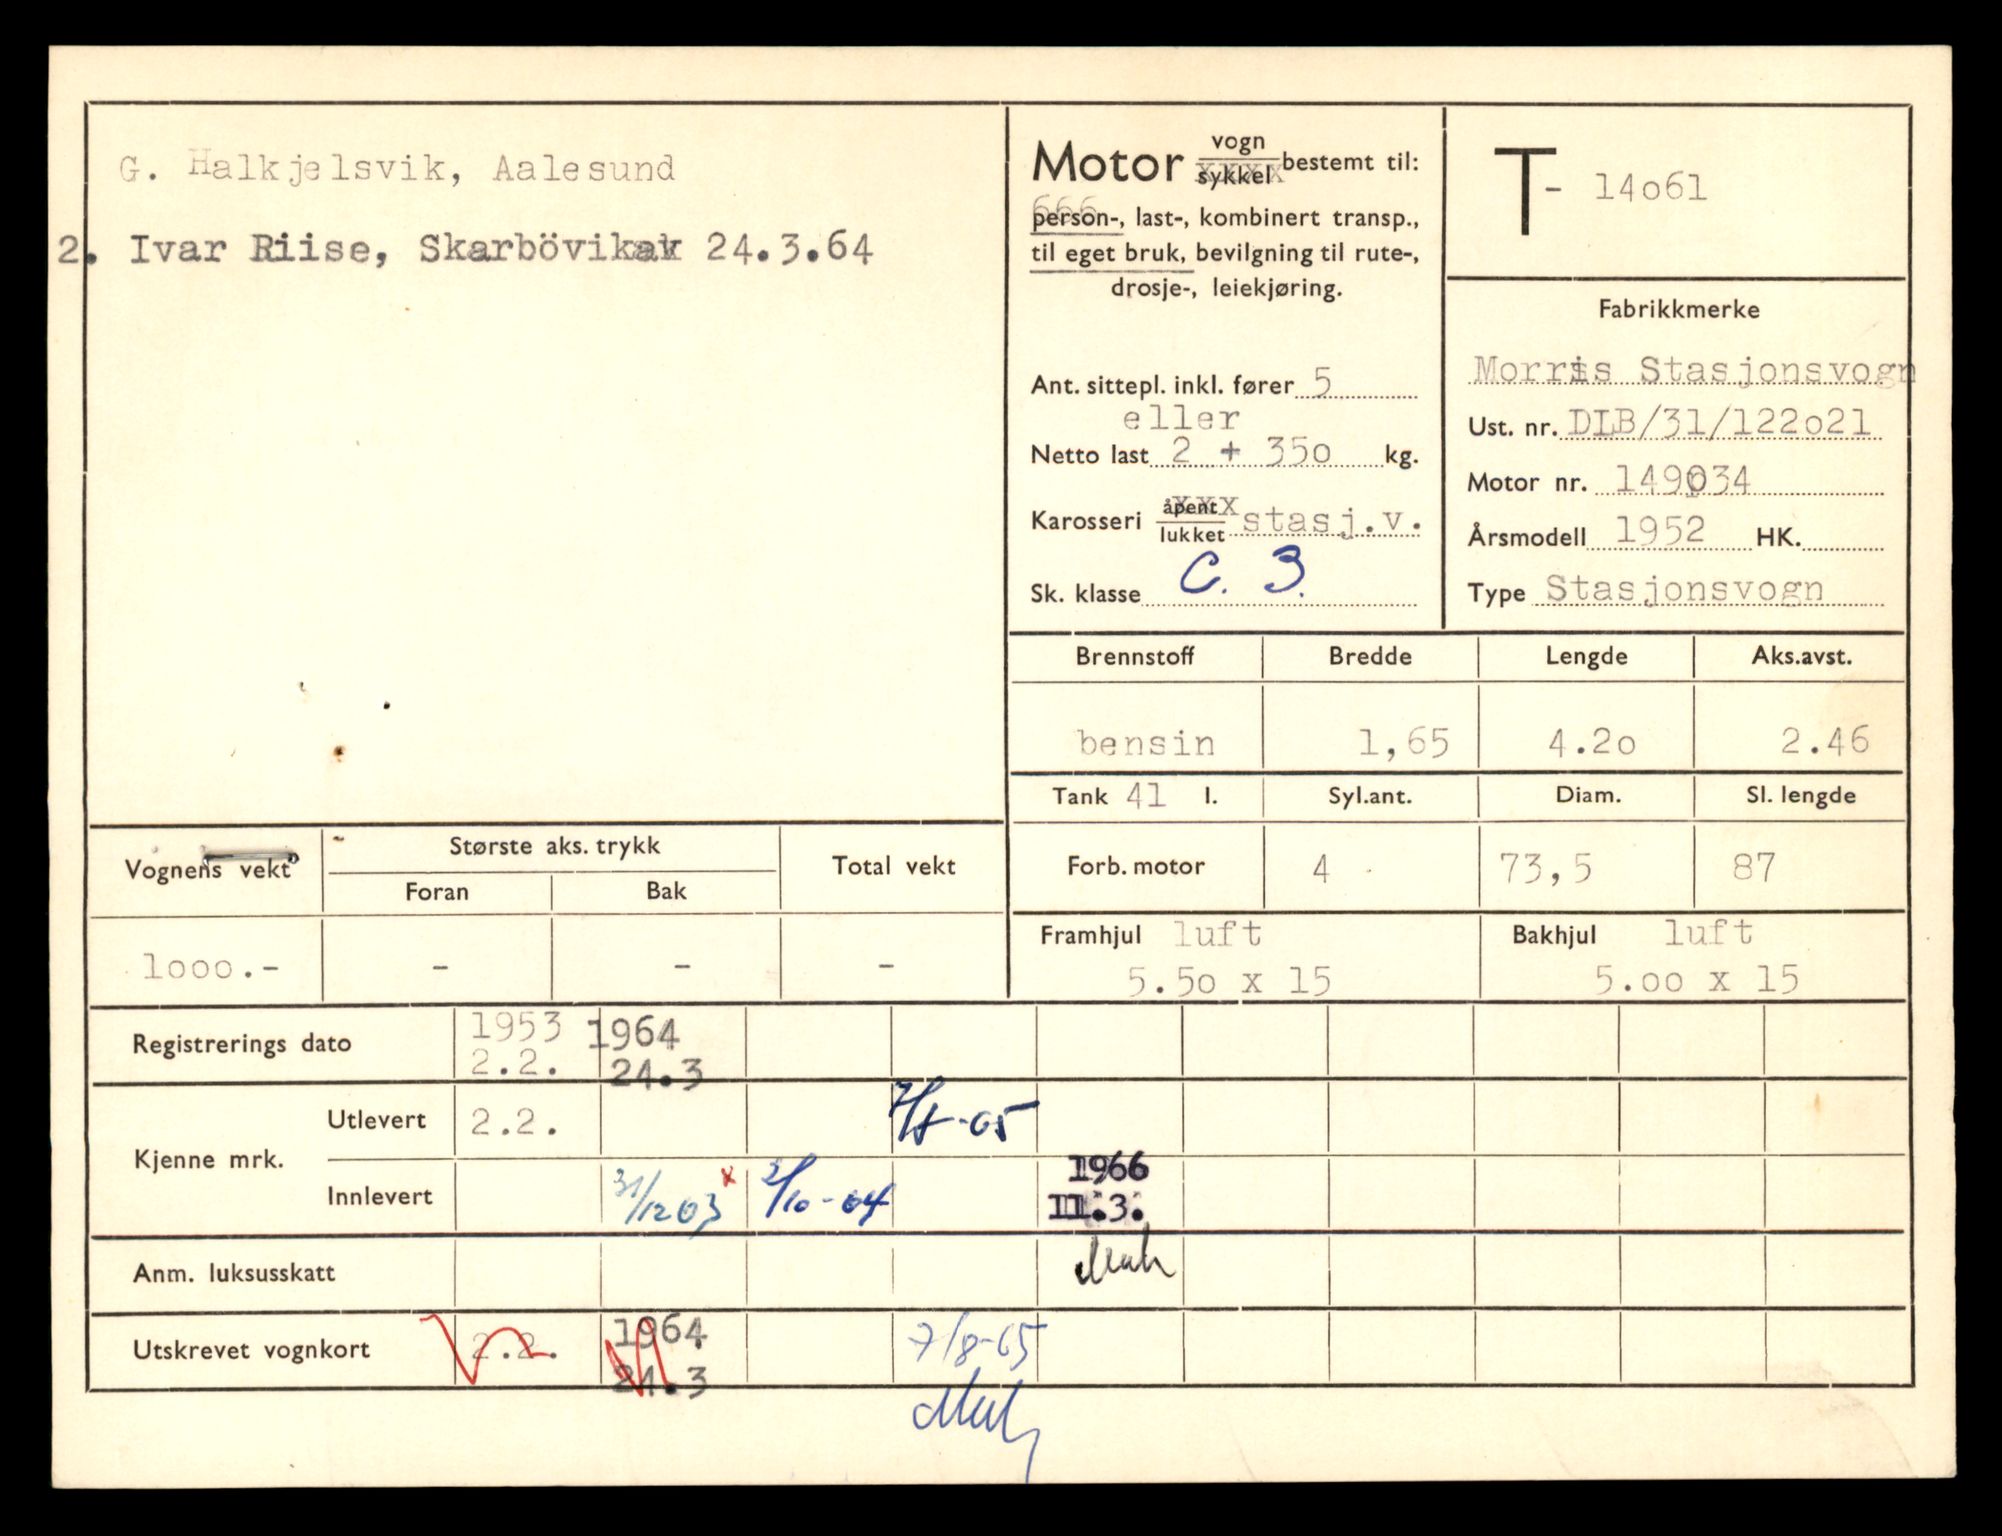 G. Halkjelsvik, Aalesund
2. Ivar Riise, Skarbövik 24.3.64
Motor vogn sykkel bestemt til:
person-, last-, kombinert transp.,
til eget bruk, bevilgning til rute-,
drosje-, leiekjøring.
Ant. sittepl. inkl. fører 5
eller
Netto last 2 + 35o kg.
Karosseri åpent lukket stasj.v.
Sk. klasse C. 3.
T- 14o61
Fabrikkmerke
Morris Stasjonsvogn
Ust. nr. DLB/31/122o21
Motor nr.
Årsmodell 1952 HK.
Type Stasjonsvogn
Brennstoff Bredde Lengde Aks.avst.
bensin 1,65 4.2o 2.46
Tank 41 l. Syl.ant. Diam. Sl. lengde
Forb. motor 4 73,5 87
Framhjul luft Bakhjul luft
5.5o x 15 5.oo x 15
Vognens vekt Største aks. trykk Total vekt
Foran Bak
looo.- - - -
Registrerings dato 1953 1964
2.2. 24.3
Kjenne mrk. Utlevert 2.2. 7/8-65
Innlevert 31/12 63 x 2/10-64 1966
11.3.
Anm. luksusskatt
Utskrevet vognkort 2.2. 1964 7/8-65
24.3